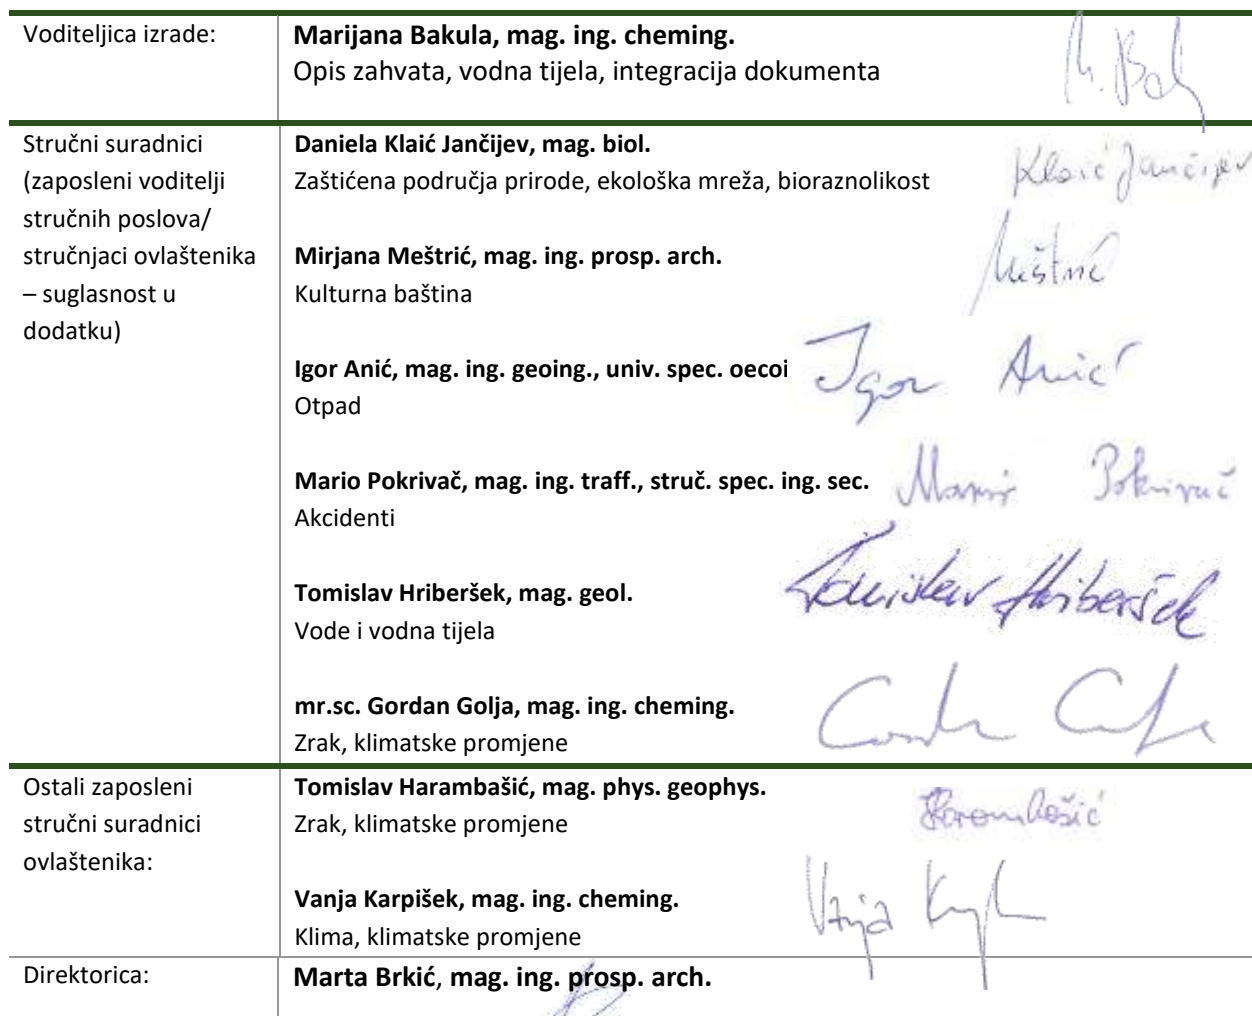 Voditeljica izrade:
Marijana Bakula, mag. ing. cheming.
Opis zahvata, vodna tijela, integracija dokumenta
M. Bak
Stručni suradnici
(zaposleni voditelji
stručnih poslova/
stručnjaci ovlaštenika
– suglasnost u
dodatku)
Daniela Klaić Jančijev, mag. biol.
Zaštićena područja prirode, ekološka mreža, bioraznolikost
Klaić Jančijev
Mirjana Meštrić, mag. ing. prosp. arch.
Kulturna baština
Meštrić
Igor Anić, mag. ing. geoing., univ. spec. oecoi
Otpad
Igor Anić
Mario Pokrivač, mag. ing. traff., struč. spec. ing. sec.
Akcidenti
Mario Pokrivač
Tomislav Hriberšek, mag. geol.
Vode i vodna tijela
Tomislav Hriberšek
mr.sc. Gordan Golja, mag. ing. cheming.
Zrak, klimatske promjene
Ostali zaposleni
stručni suradnici
ovlaštenika:
Tomislav Harambašić, mag. phys. geophys.
Zrak, klimatske promjene
Harambašić
Vanja Karpišek, mag. ing. cheming.
Klima, klimatske promjene
Vanja
Direktorica:
Marta Brkić, mag. ing. prosp. arch.